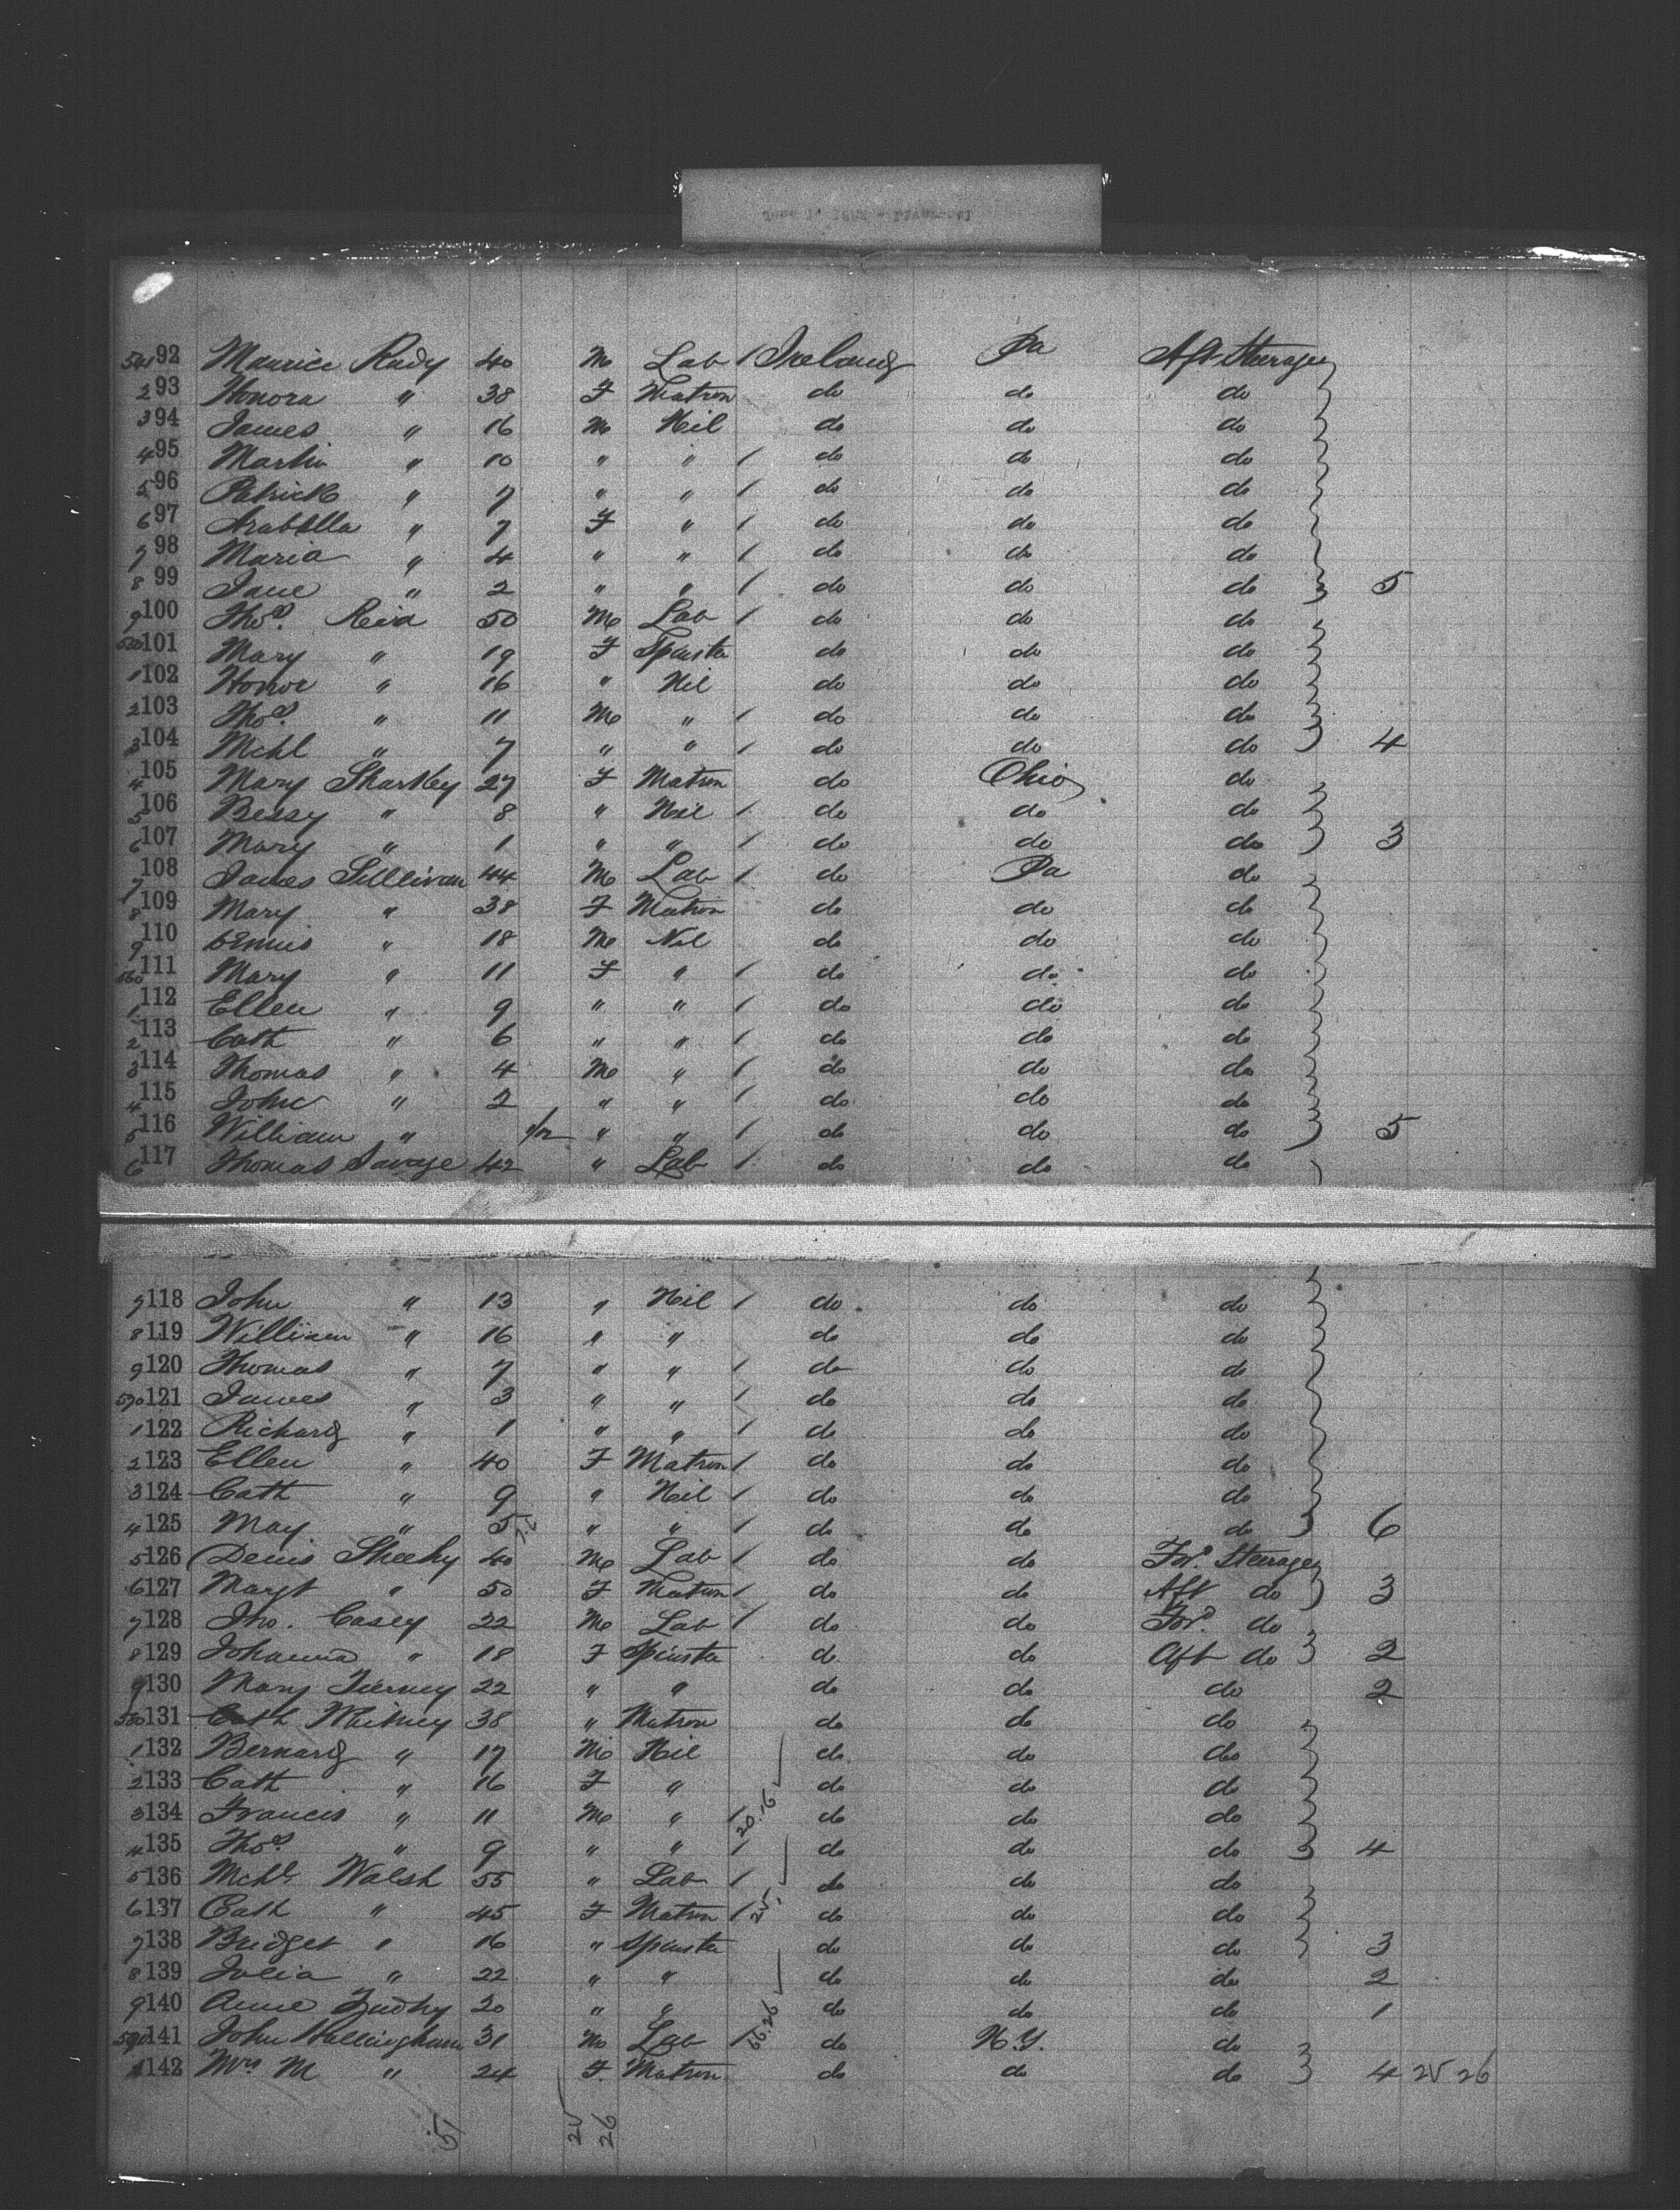 541 92 Maurice Rady 40 M Lab / Ireland Pa Aft Steerage
2 93 Honora " 38 F Matron do do do
3 94 James " 16 M Nil do do do
4 95 Martin " 10 " " / do do do
5 96 Patrick " 7 " " / do do do
6 97 Arabella " 7 F " / do do do
7 98 Maria " 4 " " / do do do
8 99 Jane " 2 " " / do do do 5
9 100 Thos. 50 M Lab / do do do
550 101 Mary " 19 F Spinster do do do
1 102 Honor " 16 " Nil do do do
2 103 Thos. " 11 M " / do do do
3 104 Mchl " 7 " " / do do do 4
4 105 Mary Sharkey 27 F Matron do Ohio do
5 106 Bessy " 8 " Nil / do do do
6 107 Mary " 1 " " / do do do 3
7 108 James Sullivan 44 M Lab / do Pa do
8 109 Mary " 38 F Matron do do do
9 110 Dennis " 18 M Nil do do do
560 111 Mary " 11 F " / do do do
1 112 Ellen " 9 " " / do do do
2 113 Cath " 6 " " / do do do
3 114 Thomas " 4 M " / do do do
4 115 John " 2 " " / do do do
5 116 William " " " / do do do 5
6 117 Thomas Savage 42 " Lab / do do do
7 118 John " 13 " Nil / do do do
8 119 William " 16 " " do do do
9 120 Thomas " 7 " " / do do do
570 121 James " 3 " " / do do do
1 122 Richard " 1 " " / do do do
2 123 Ellen " 40 F Matron / do do do
3 124 Cath " 9 " Nil / do do do
4 125 May " 5 " " / do do do 6
5 126 Denis Sheehy 40 M Lab / do do For. Steerage
6 127 Margt " 50 F Matron / do do Aft do 3
7 128 Jno. Casey 22 M Lab / do do For. do
8 129 Johanna " 18 F Spinster do do Aft do 2
9 130 Mary Tierney 22 " " do do do 2
580 131 Cath Whitney 38 " Matron do do do
1 132 Bernard " 17 M Nil do do do
2 133 Cath " 16 F " do do do
3 134 Francis " 11 M " / 20.16 do do do
4 135 Thos. " 9 " " / do do do 4
5 136 Mchl. Walsh 55 " Lab / do do do
6 137 Cath " 45 F Matron / do do do
7 138 Bridget " 16 " Spinster do do do 3
8 139 Julia " 22 " " do do do 2
9 140 Anne 20 " " do do do 1
590 141 John 31 M Lab / 66.26 do N.Y. do
1 142 Mrs M " 24 F Matron do do do 4 26
26